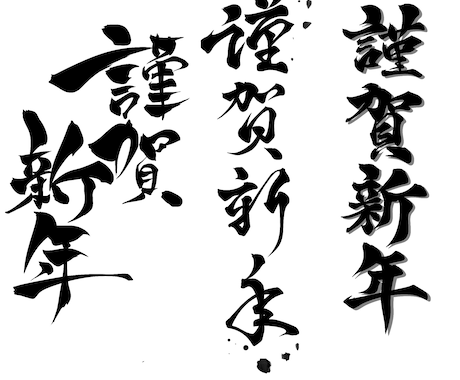 謹賀新年
謹賀新年
謹賀
新年